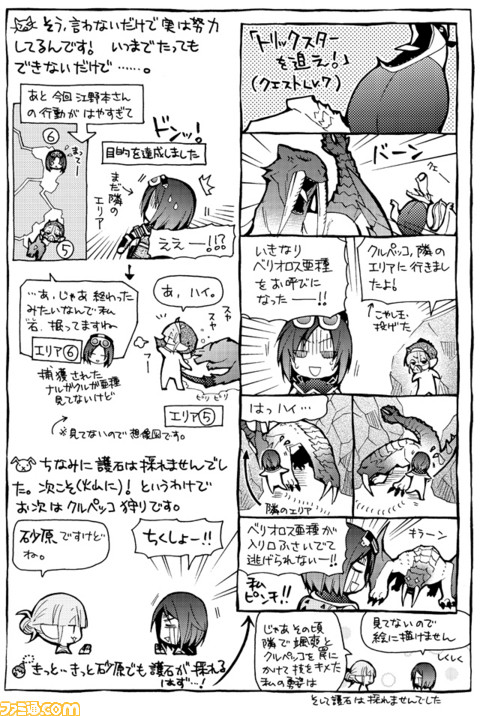 そう、言わないだけで実は努力
してるんです! いつまでたっても
できないだけで……。
「トリックスター
を追え!」
(クエストLv.7)
ドーン
クェ
クルペッコ、隣の
エリアに行きま
したよ!
こやし玉
投げた
いきなり
ベリオロス亜種
をお呼びに
なったー!!
はっハイ…
隣のエリア
ベリオロス亜種が
入り口ふさいでて
逃げられないー!!
私
ピンチ!!
キラーン
見てないので
絵に描けません
しくしく
じゃあその頃
隣で颯爽と
クルペッコを罠に
かけて技をキメた
私の勇姿は
そして護石は採れませんでした
あと今回江野本さん
の行動がはやすぎて
⑥
まってー
⑤
ドンッ!
目的を達成しました
まだ隣の
エリア
ええー!!?
…あ、じゃあ終わった
みたいなんで私
石、掘ってますね
エリア⑥
あ、ハイ。
スヤ
スヤ
ピリピリ
エリア⑤
捕獲された
ナルガクルガ亜種
見てないけど
※見てないので想像図です。
ちなみに護石は採れませんでし
た。次こそ(火山に)! というわけで
お次はクルペッコ狩りです。
砂原ですけど
ね。
ちくしょー!!
きっと…きっと砂原でも護石が採れる
はず…!
ファミ通.com